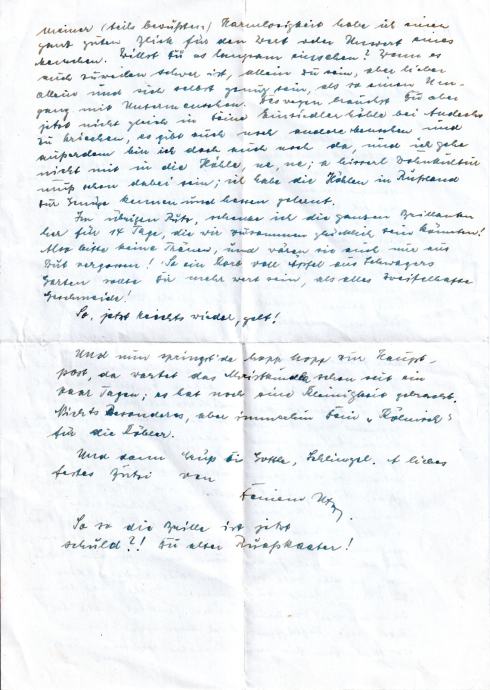 meiner (teils bewußten) Harmlosigkeit habe ich einen
ganz guten Blick für den Wert oder Unwert eines
Menschen. Willst Du es langsam einsehen? Wenn es
auch zuweilen schwer ist, allein zu sein, aber lieber
allein und sich selbst genug sein, als so einen Um-
gang mit Untermenschen. Deswegen brauchst Du aber
jetzt nicht gleich in Deine Einsiedlerhöhle bei Andechs
zu kriechen, es gibt auch noch andere Menschen und
außerdem bin ich doch auch noch da, und ich gehe
nicht mit in die Höhle, ne, ne; a bisserl Wohnkultur
muß schon dabei sein; ich habe die Höhlen in Rußland
zur Genüge kennen und hassen gelernt.
Im übrigen schenke ich die ganzen Brillanten
her für 14 Tage, die wir zusammen glücklich sein könnten!
Also bitte keine Tränen, und wären sie auch nur aus
Wut vergossen! So ein Korb voll Äpfel aus Schwagers
Garten sollte Dir mehr wert sein, als alles zweifelhafte
Geschmeide!
So, jetzt wieder, gelt!
Und nun springst'de hopp hopp zur Haupt-
post, da wartet das schon seit ein
paar Tagen; es hat noch eine Kleinigkeit gebracht.
Nichts Besonderes, aber immerhin Dein „Kölnisch"
für die
Und dann Grüß Di Gottle, Schlingel. A liebes
festes von
Deinem
So so die Brille ist jetzt
schuld?! Du alter